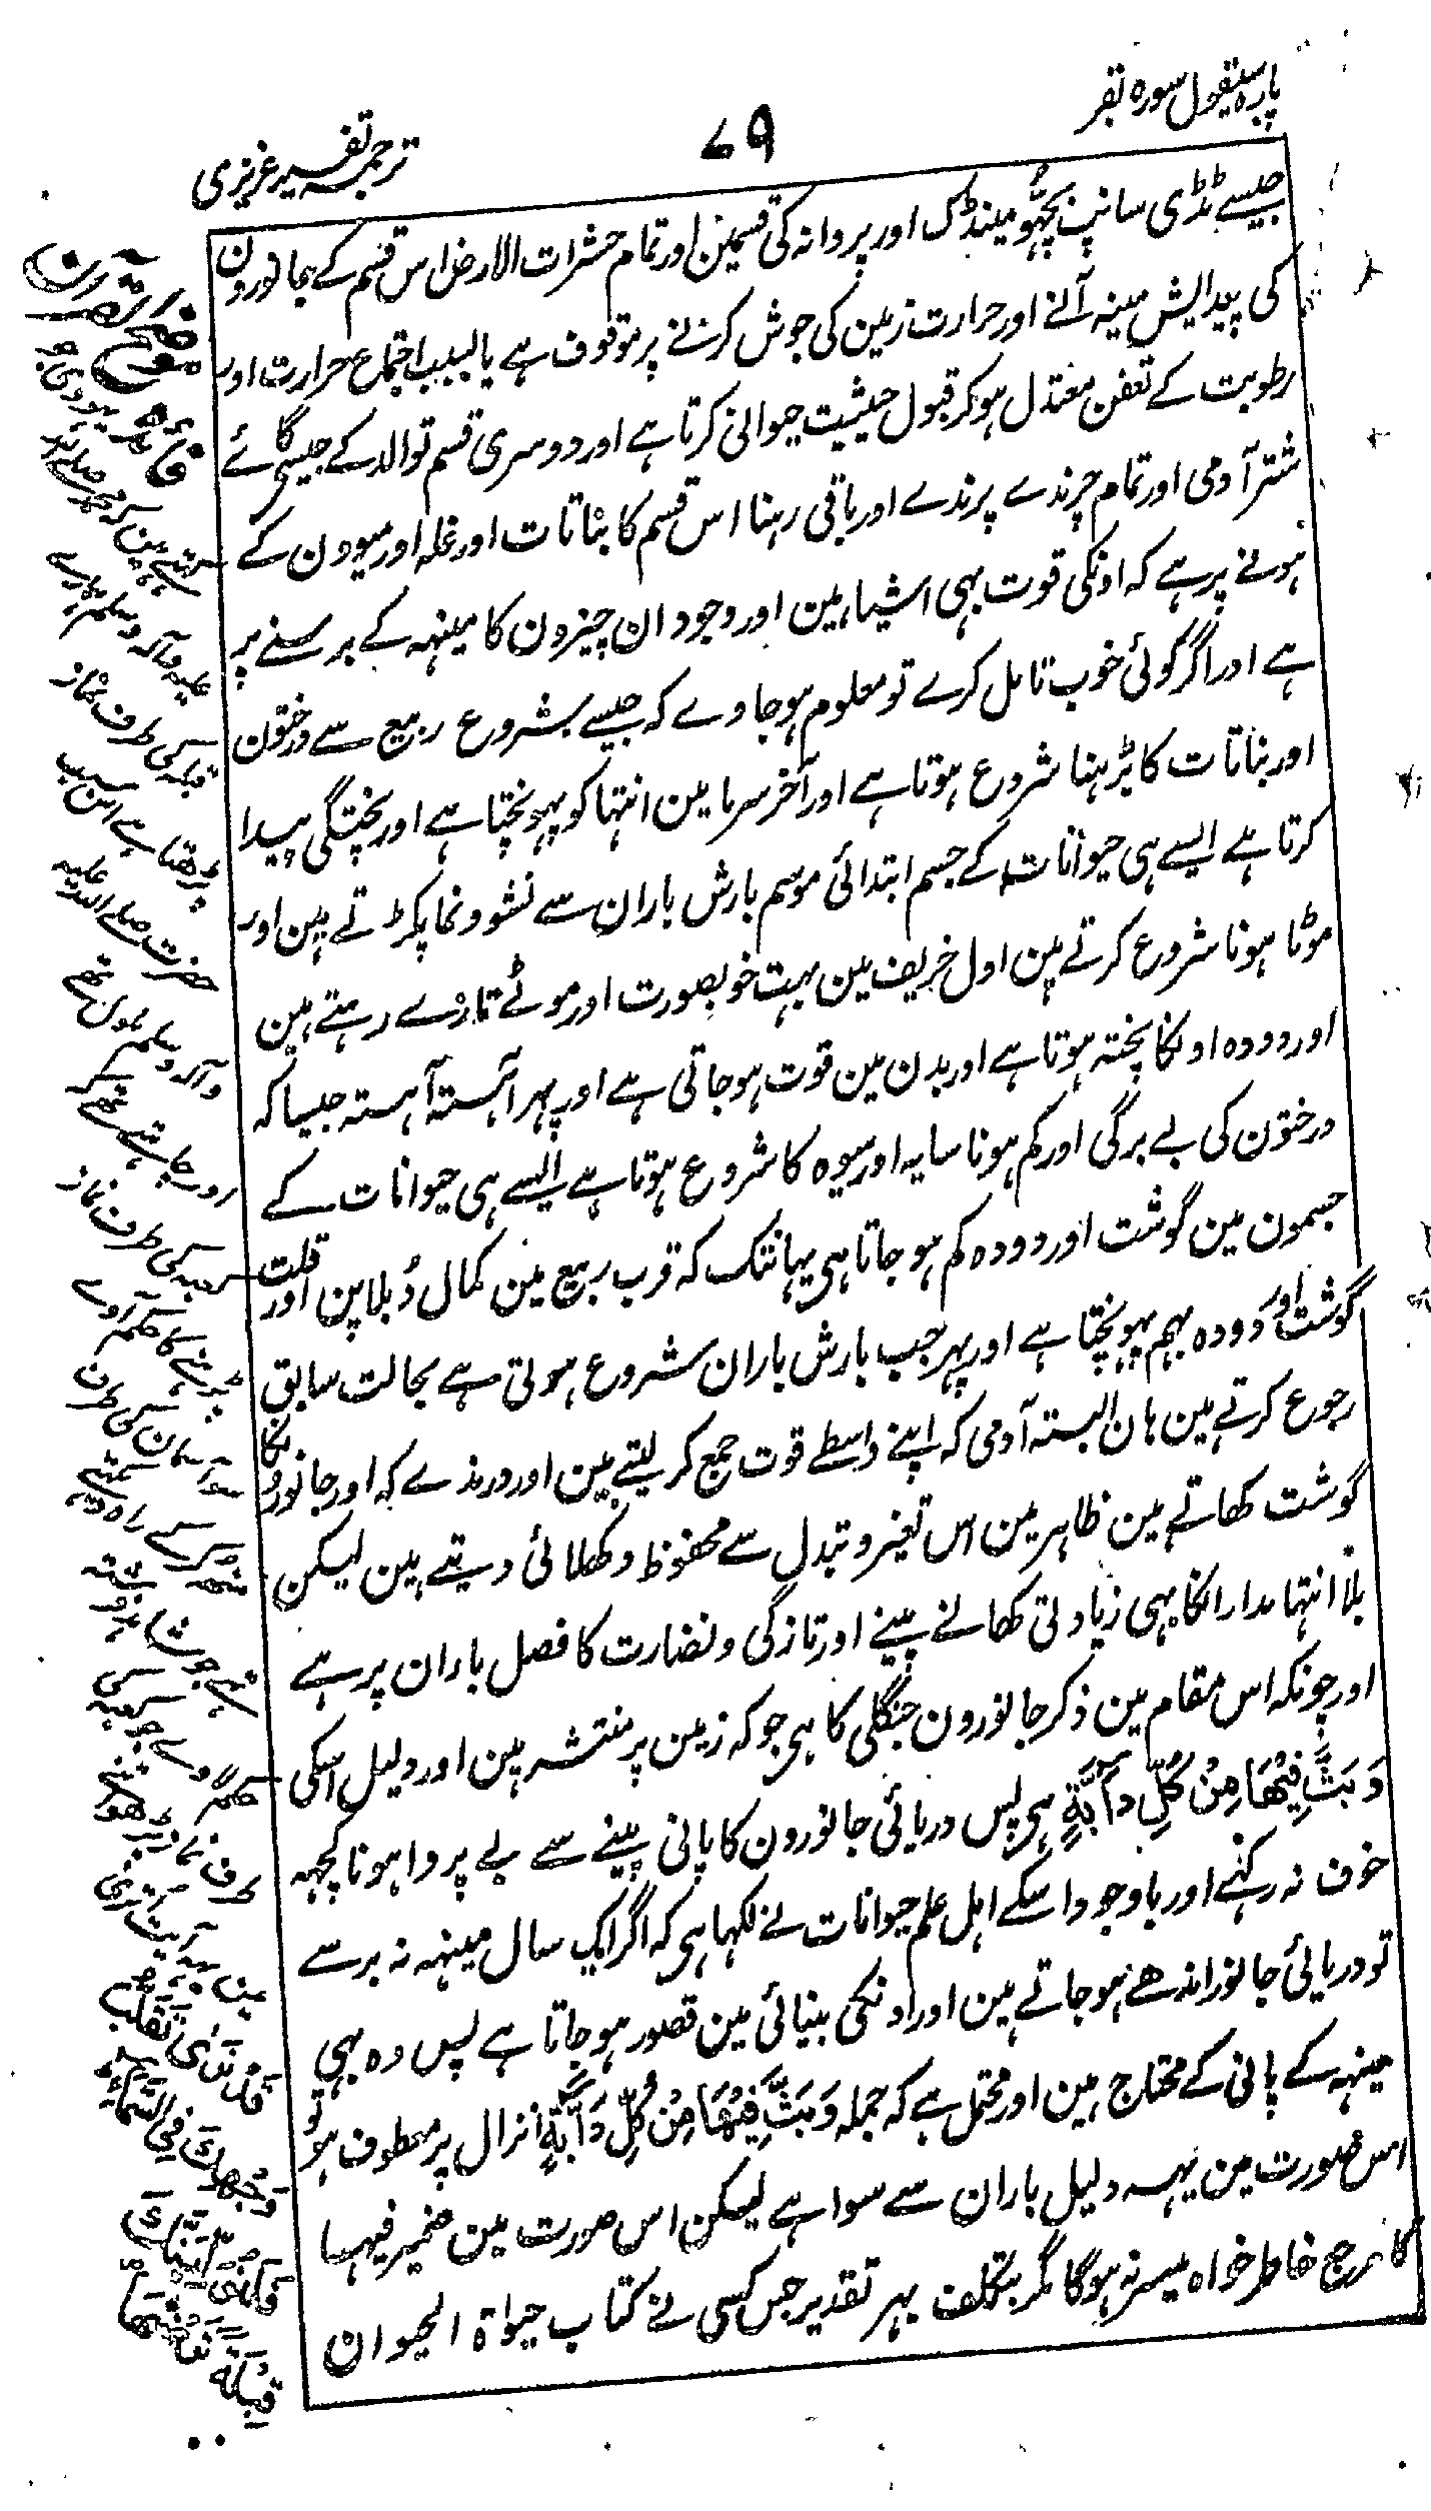 پارہ سیقول سورہ بقر
۷۹
ترجمہ تفسیر عزیزی
جیسے ٹڈی سانپ بچھو مینڈک اور پروانہ کی قسمین اور تمام حشرات الارض اس قسم کے جانورون
کی پیدایش مینہ آنے اور حرارت زمین کی جوش کرنے پر موقوف ہے یا بسبب اجتماع حرارت اور
رطوبت کے تعفن معتدل ہو کر قبول حیثیت حیوانی کرتا ہے اور دوسری قسم توالد کے جیسی گائے
شتر آدمی اور تمام چرندے پرندے اور باقی رہنا اس قسم کا بناتات اور غلہ اور میوون کے
ہونے پر ہے کہ اونکی قوت بہی اشیا ہین اور وجود ان چیزون کا مینہہ کے برسنے پر
ہے اور اگر کوئی خوب تامل کرے تو معلوم ہو جاوے کہ جیسے بشروع ربیع سے درختون
اور بناتات کا بڑہنا شروع ہوتا ہے اور آخر سرما مین انتہا کو پہونچتا ہے اور پختگی پیدا
کرتا ہے ایسے ہی حیوانات کے جسم ابتدائی موسم بارش باران سے نشوونما پکڑتے ہین اور
موٹا ہونا شروع کرتے ہین اول خریف مین بہت خوبصورت اور موٹے تازے رہتے ہین
اور دودہ اونکا پختہ ہوتا ہے اور بدن مین قوت ہو جاتی ہے اور پہر آہستہ آہستہ جیسا کہ
درختون کی بے برگی اور کم ہونا سایہ اور میوہ کا شروع ہوتا ہے ایسے ہی حیوانات کے
جسمون مین گوشت اور دودہ کم ہو جاتا ہی یہانتک کہ قرب ربیع مین کمال دُبلا پن اور قلت
گوشت اور دودہ بہم پہونچتا ہے اور پہر جب بارش باران شروع ہوتی ہے بحالت سابق
رجوع کرتے ہین ہان البستہ آدمی کہ اپنے واسطے قوت جمع کر لیتے ہین اور درندے کہ اور جانورونکا
گوشت کھاتے ہین ظاہر مین اس تغیر و تبدل سے محفوظ دکھلائی دیتے ہین لیکن
بلا انتہا مدار انکا بہی زیادتی کھانے پینے اور تازگی و نضارت کا فصل باران پر ہے
اور چونکہ اس مقام مین ذکر جانورون جنگلی کا ہی جو کہ زمین پر منتشر ہین اور دلیل اسکی
وَبَثَّ فِيْهَا مِنْ كُلِّ دَآبَّةٍ ہی پس دریائی جانورون کا پانی پینے سے بے پروا ہونا کچہہ
خوف نہ رکہنے اور باوجود اسکے اہل علم حیوانات نے لکہا ہی کہ اگر ایک سال مینہہ نہ برسے
تو دریائی جانور اندھے ہو جاتے ہین اور اونکی بینائی مین قصور ہو جاتا ہے پس وہ بہی
مینہہ کے پانی کے محتاج ہین اور محتمل ہے کہ جملہ وَبَثَّ فِيْهَا مِنْ كُلِّ دَآبَّةٍ انزال پر معطوف ہو تو
اس صورت مین یہہ دلیل باران سے سوا ہے لیکن اس صورت مین ضمیر فیہا
کا مرجع خاطر خواہ میسر نہ ہوگا مگر بتکلف بہر تقدیر جس کسی نے کتاب حیوٰۃ الحیوان
موضح القرآن
ف
کہتے ہین کہ محمد صلے اللہ
علیہ وآلہ وسلم
قبلہ کی طرف نماز
پڑھتا ہے اس سبب
حضرت صلے اللہ علیہ
وآلہ وسلم
کعبہ کی طرف نماز
پڑہنے کا حکم آوے
سو آسمان کی طرف
منھہ کر کے راہ دیکہتے
تھے جو شاید فرشتہ
حکم لاوے جو کعبہ کی
طرف نماز پڑھو تب
یہہ آیت اتری
قَدْ نَرٰى تَقَلُّبَ
وَجْهِكَ فِي السَّمَآءِ
فَلَنُوَلِّيَنَّكَ
قِبْلَةً تَرْضٰىهَا